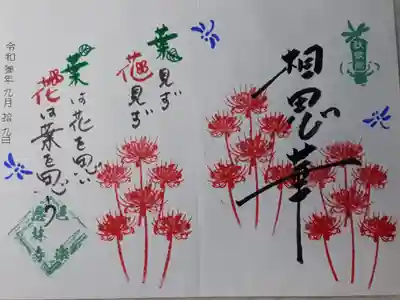 相思華
葉見ず
花見ず
葉は花を思い
花は葉を思う
令和 年九月拾九日